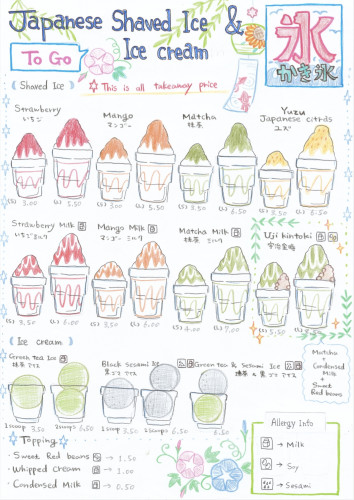 Japanese Shaved Ice &
Ice cream
To Go
氷
かき氷
Shaved Ice
This is all takeaway price
Strawberry
いちご
Mango
マンゴー
Matcha
抹茶
Yuzu
Japanese citrus
ユズ
(S) 3.50
(L) 5.50
(S) 3.00
(L) 5.00
(S) 3.50
(L) 6.50
(S) 3.50
(L) 6.50
Strawberry Milk
いちごミルク
Mango Milk
マンゴー ミルク
Matcha Milk
抹茶 ミルク
Uji kintoki
宇治金時
(S)
(L) 6.00
(S)
(L) 6.00
(S) 4.00
(L) 7.00
(S) 5.50
(L)
Matcha
+
Condensed
Milk
+
Sweet
Red beans
Ice cream
Green tea Ice
抹茶 アイス
Black Sesami Ice
黒ゴマ アイス
Green tea & Sesami Ice
抹茶 & 黒ゴマ アイス
1 scoop 3.50
2 scoop 6.50
1 scoop 3.50
2 scoop 6.50
6.50
Topping
・Sweet Red beans → 1.50
・Whipped cream → 1.00
・Condensed Milk → 0.50
Allergy Info
→ Milk
→ Soy
→ Sesami